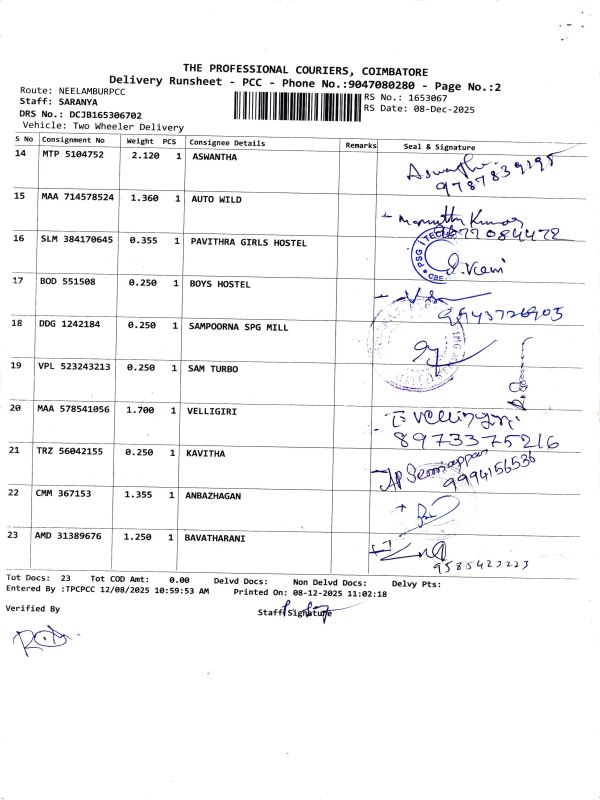 THE PROFESSIONAL COURIERS, COIMBATORE
Delivery Runsheet - PCC - Phone No.:9047080280 - Page No.:2
Route: NEELAMBURPCC
RS No.: 1653067
Staff: SARANYA
RS Date: 08-Dec-2025
DRS No.: DCJB165306702
Vehicle: Two Wheeler Delivery
S No Consignment No Weight PCS Consignee Details Remarks Seal & Signature
14 MTP 5104752 2.120 1 ASWANTHA Aswantha
9787839295
15 MAA 714578524 1.360 1 AUTO WILD
9677084472
16 SLM 384170645 0.355 1 PAVITHRA GIRLS HOSTEL
PSG iTECH
CBE
17 BOD 551508 0.250 1 BOYS HOSTEL
9943726905
18 DDG 1242184 0.250 1 SAMPOORNA SPG MILL
19 VPL 523243213 0.250 1 SAM TURBO
20 MAA 578541056 1.700 1 VELLIGIRI
8973375216
21 TRZ 56042155 0.250 1 KAVITHA
9994156536
22 CMM 367153 1.355 1 ANBAZHAGAN
23 AMD 31389676 1.250 1 BAVATHARANI
9585423223
Tot Docs: 23 Tot COD Amt: 0.00 Delvd Docs: Non Delvd Docs: Delvy Pts:
Entered By :TPCPCC 12/08/2025 10:59:53 AM Printed On: 08-12-2025 11:02:18
Verified By
Staff Signature